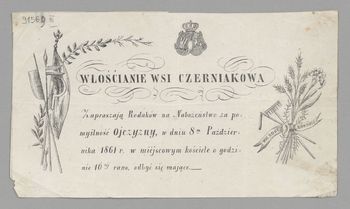 91569
WŁOŚCIANIE WSI CZERNIAKOWA
Zapraszają Rodaków na Nabożeństwo za po-
myślność Ojczyzny, w dniu 8m Paździer-
nika 1861 r. w miejscowym kościele o godzi-
nie 10éj rano, odbyć się mające.